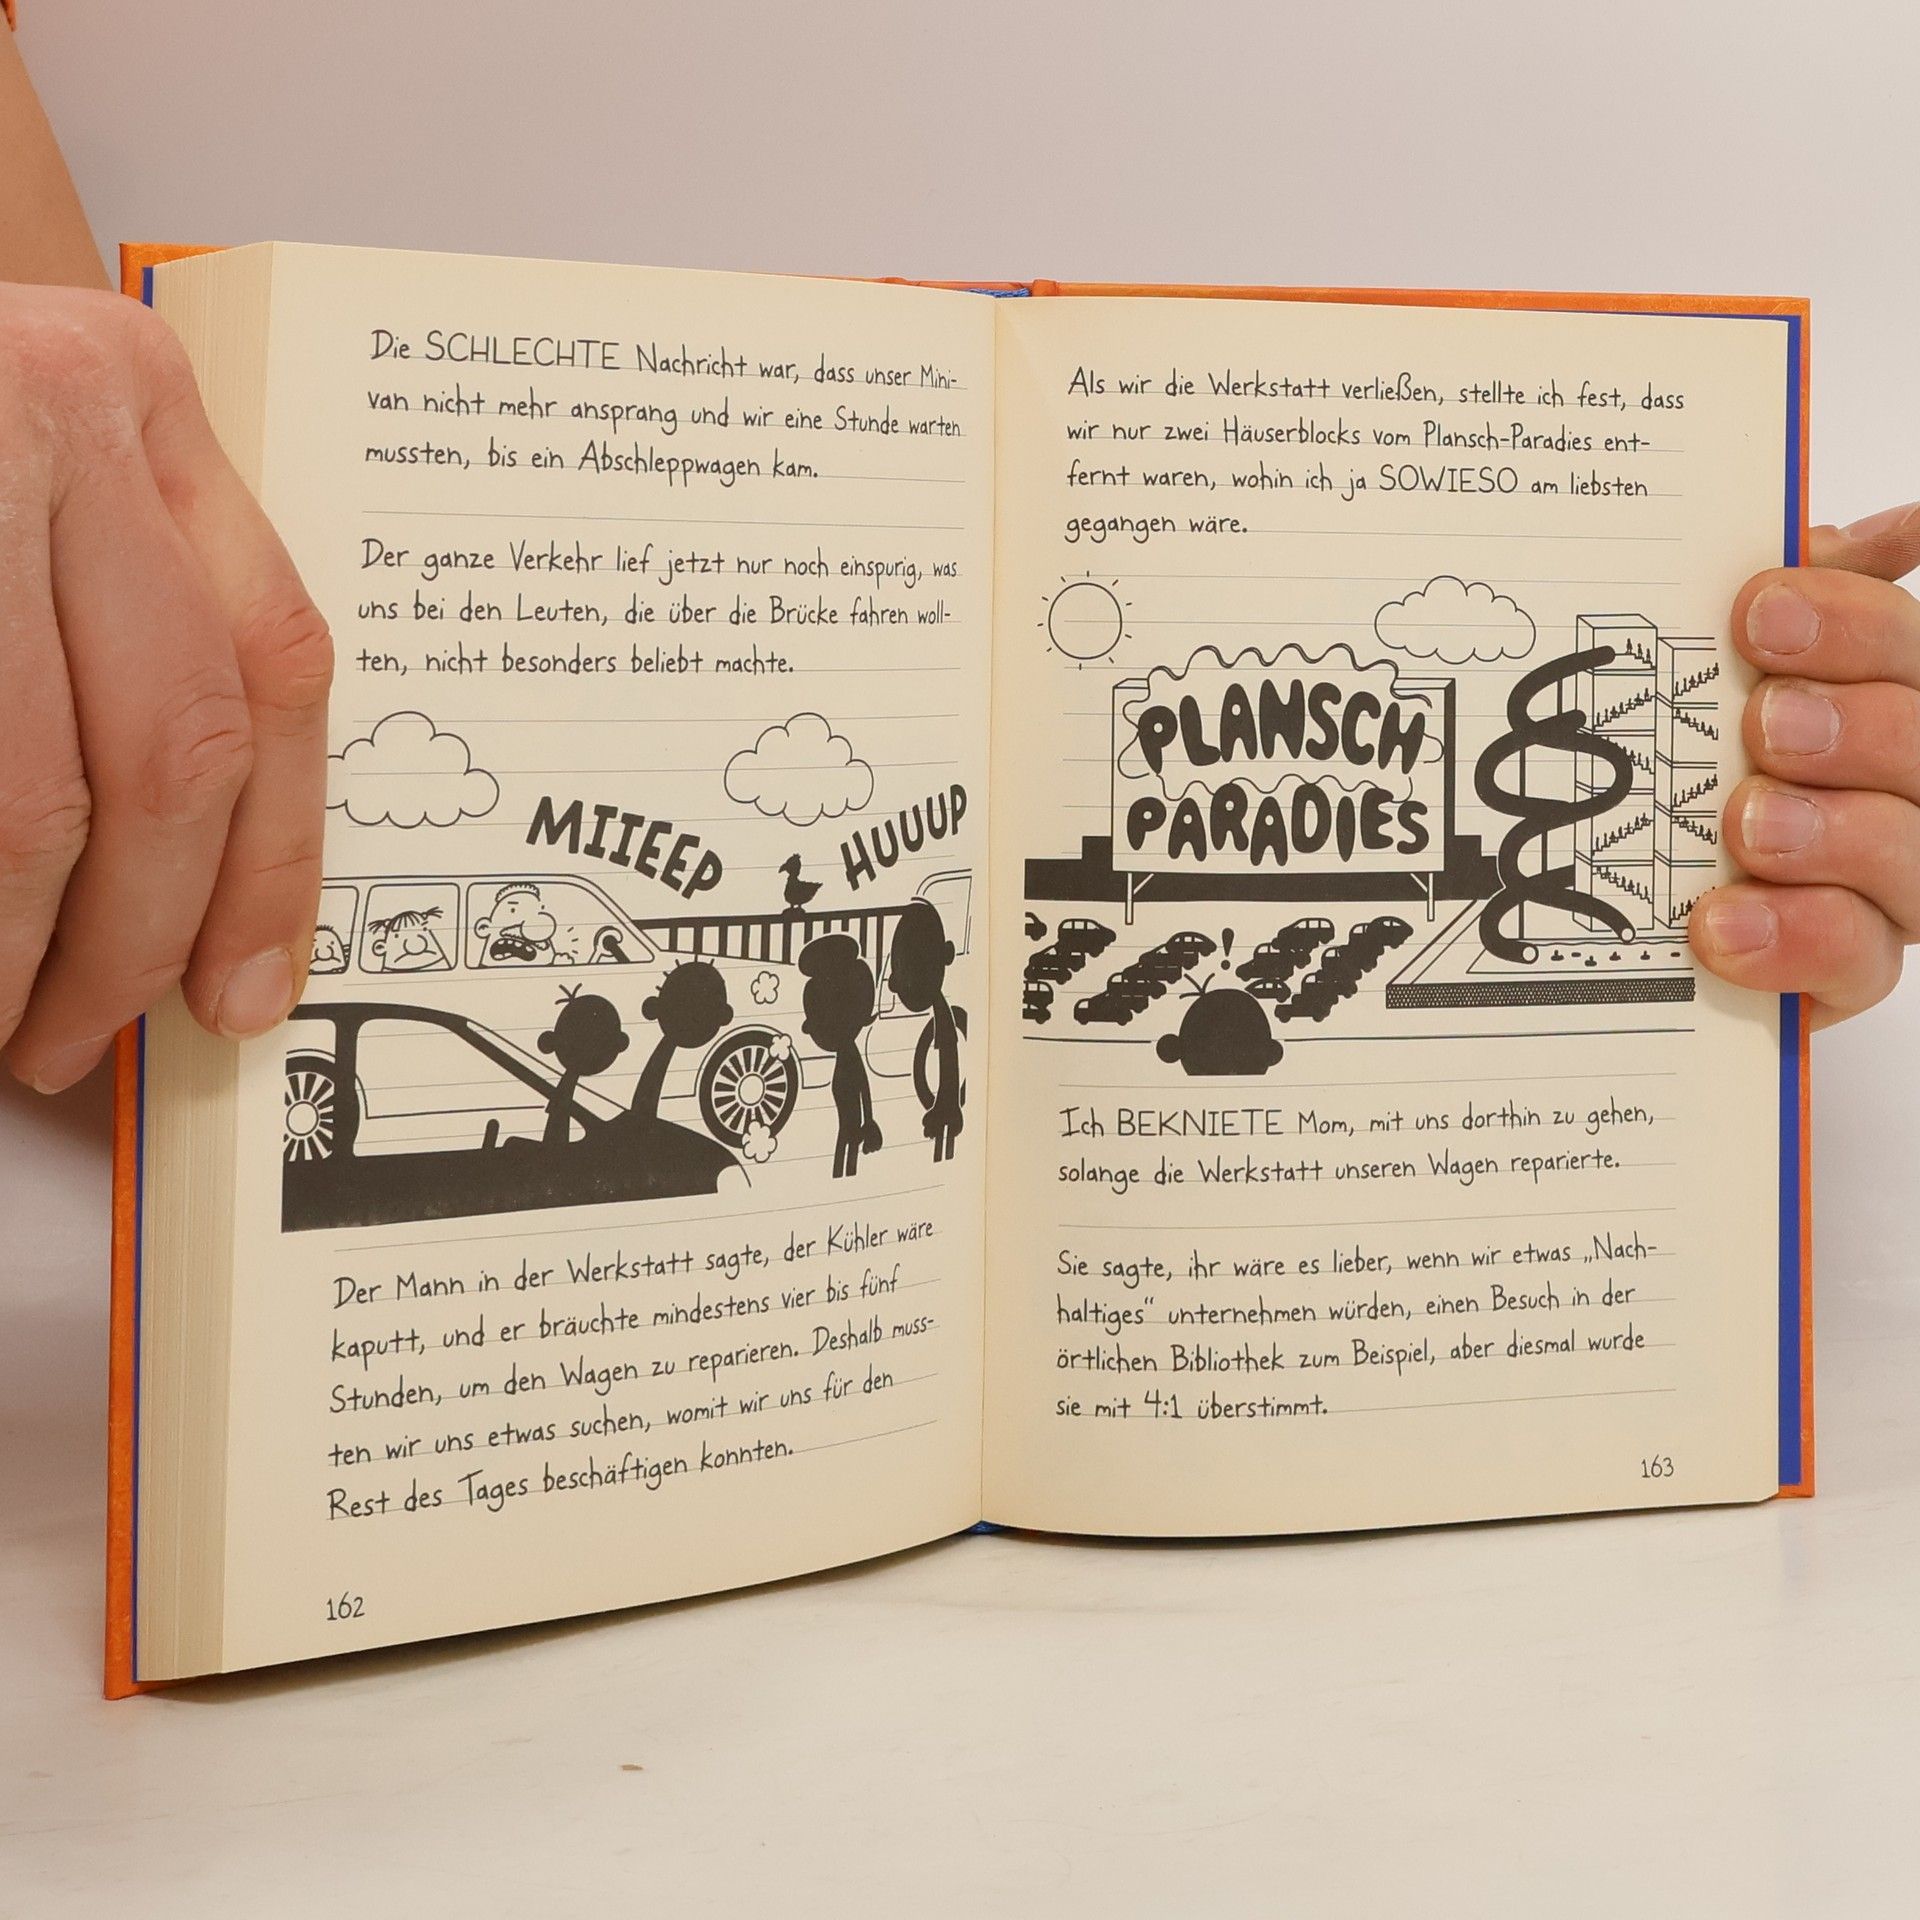 Die SCHLECHTE Nachricht war, dass unser Mini-
van nicht mehr ansprang und wir eine Stunde warten
mussten, bis ein Abschleppwagen kam.
Der ganze Verkehr lief jetzt nur noch einspurig, was
uns bei den Leuten, die über die Brücke fahren woll-
ten, nicht besonders beliebt machte.
MIIEEP
HUUUP
Der Mann in der Werkstatt sagte, der Kühler wäre
kaputt, und er bräuchte mindestens vier bis fünf
Stunden, um den Wagen zu reparieren. Deshalb muss-
ten wir uns etwas suchen, womit wir uns für den
Rest des Tages beschäftigen konnten.
162
Als wir die Werkstatt verließen, stellte ich fest, dass
wir nur zwei Häuserblocks vom Plansch-Paradies ent-
fernt waren, wohin ich ja SOWIESO am liebsten
gegangen wäre.
PLANSCH
PARADIES
!
Ich BEKNIETE Mom, mit uns dorthin zu gehen,
solange die Werkstatt unseren Wagen reparierte.
Sie sagte, ihr wäre es lieber, wenn wir etwas „Nach-
haltiges“ unternehmen würden, einen Besuch in der
örtlichen Bibliothek zum Beispiel, aber diesmal wurde
sie mit 4:1 überstimmt.
163